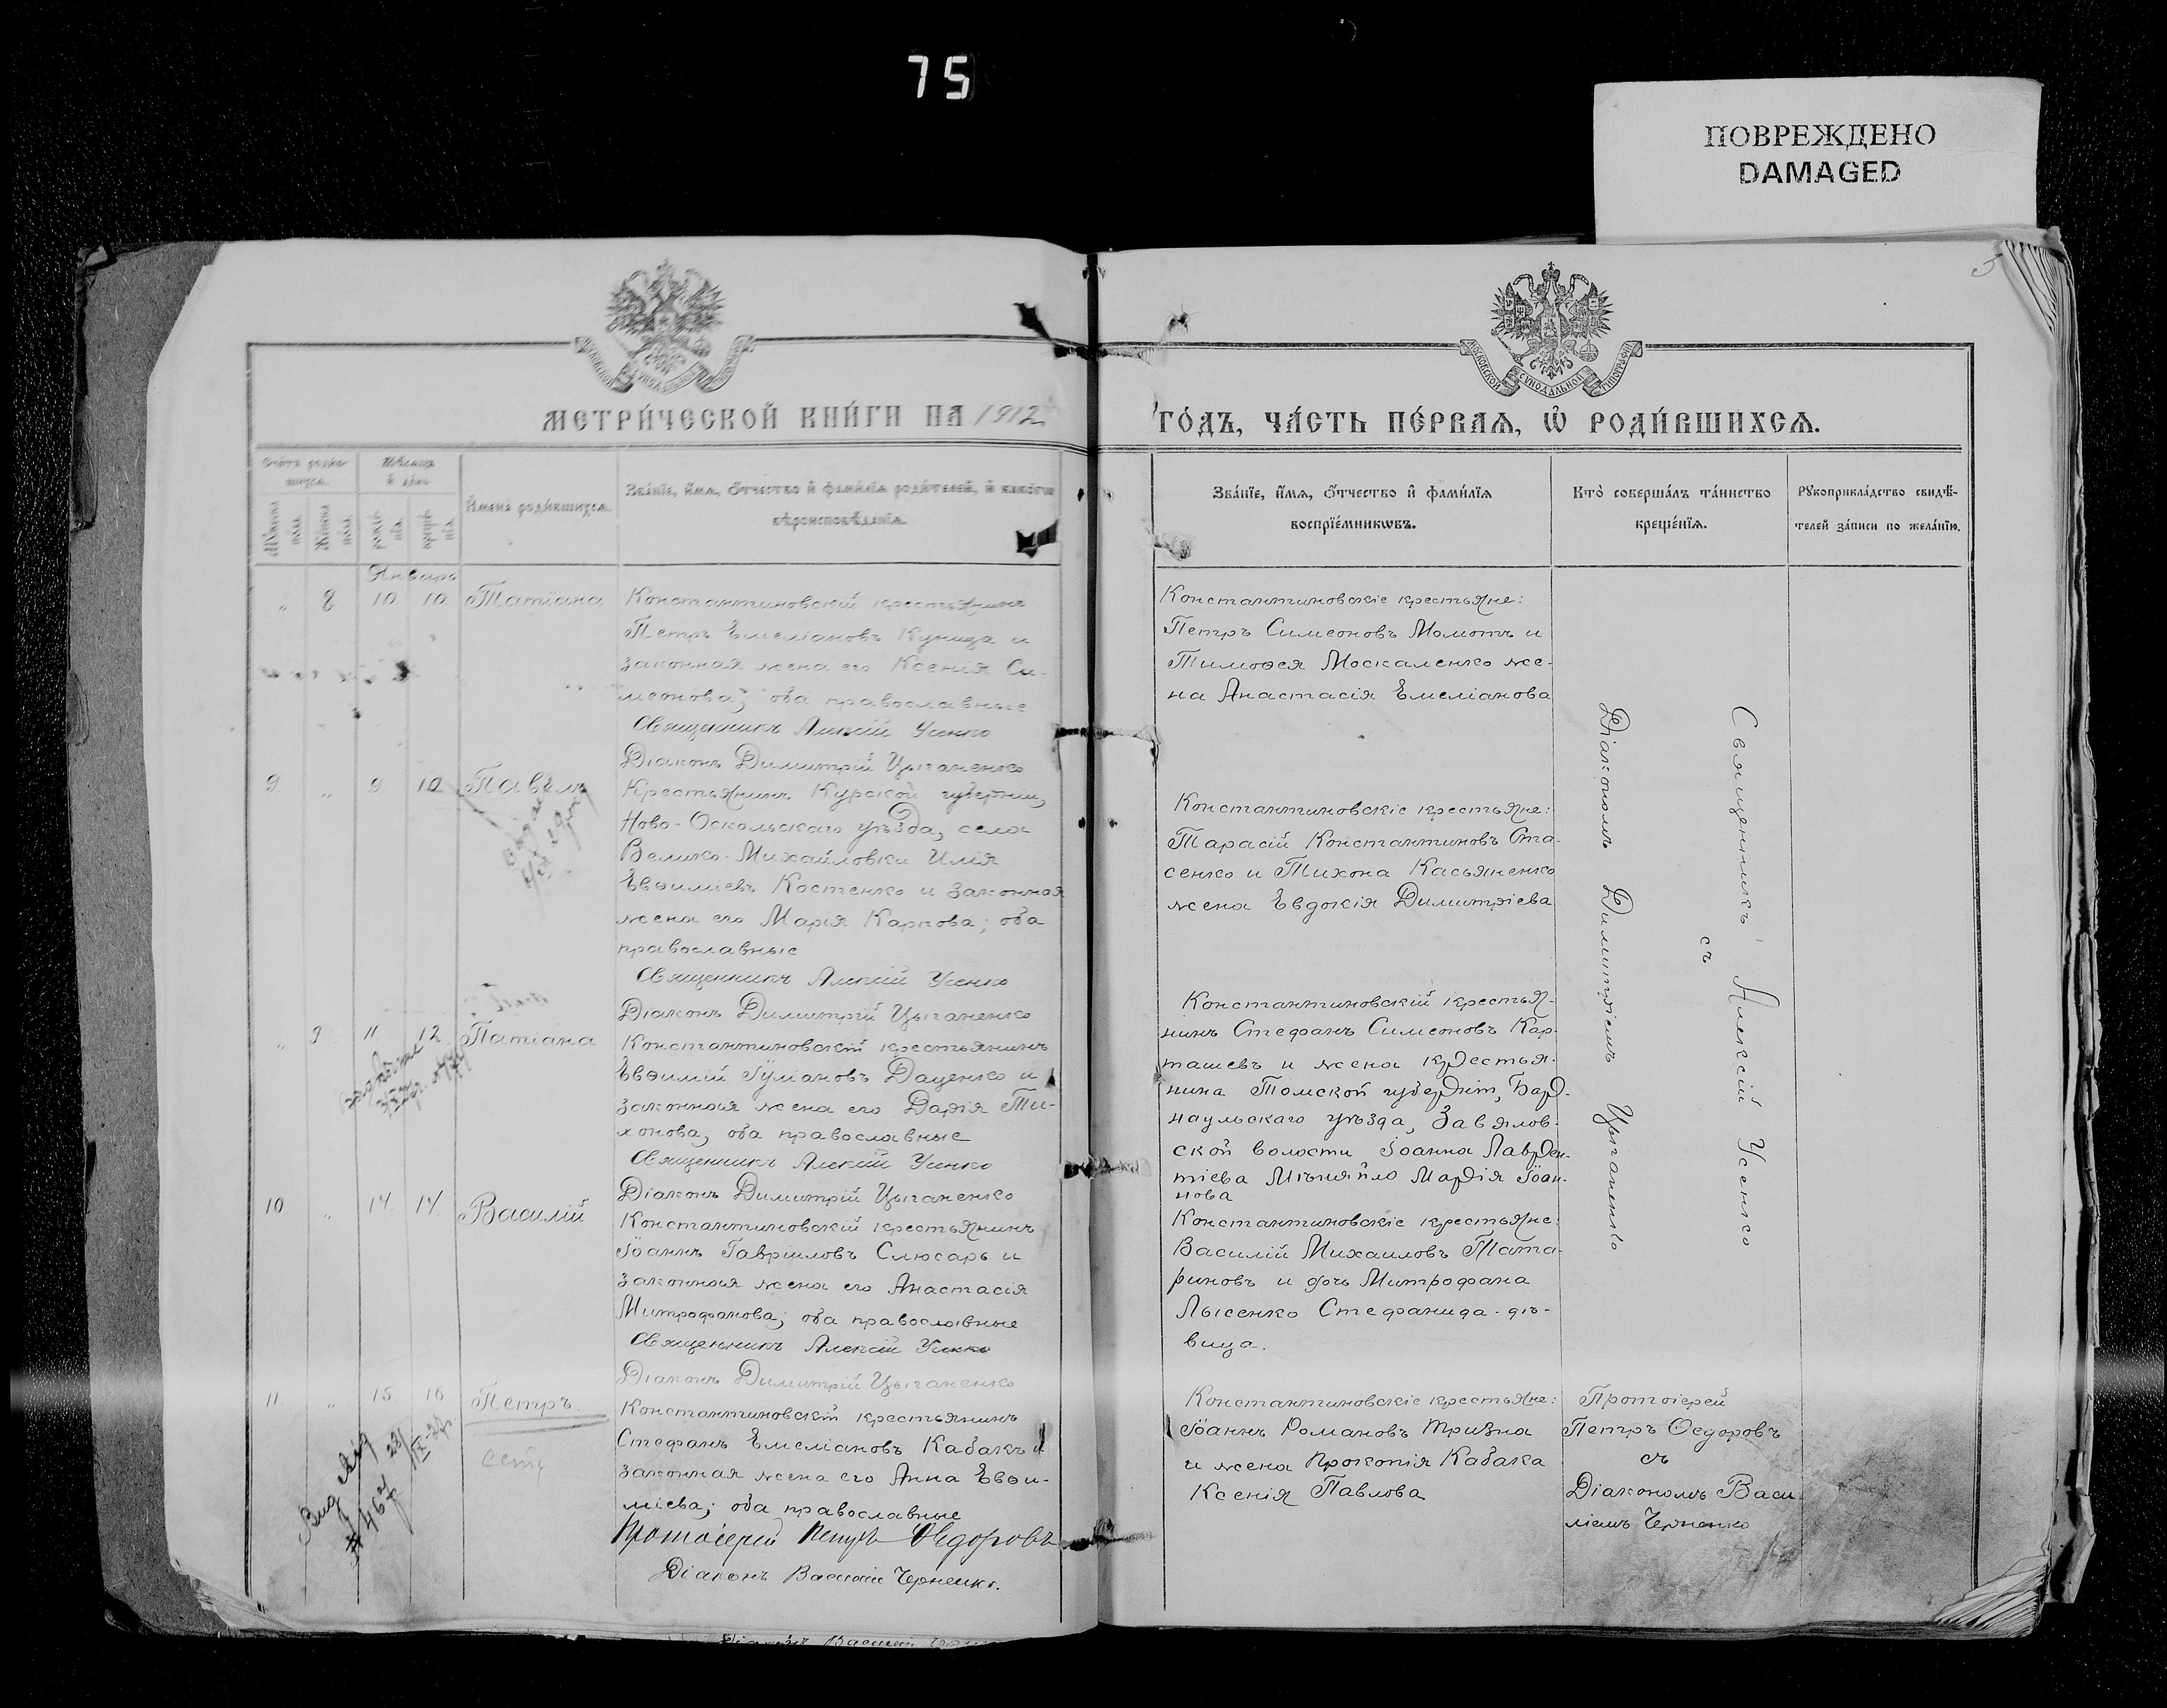 75
ПОВРЕЖДЕНО
DAMAGED
5
МОСКОВСКОЙ СѴНОДАЛЬНОЙ ТИПОГРАФІИ
МЕТРИ́ЧЕСКОЙ КНИ́ГИ НА 1912
ГО́ДЪ, ЧА́СТЬ ПЕ́РВАѦ, Ѡ҆ РОДИ́ВШИХСѦ.
Счетъ роди́вшихсѧ.
Мѣ́сѧцъ и҆ де́нь
И҆мена̀ роди́вшихсѧ.
Зва́нїе, и҆́мѧ, ѻ҆́тчество и҆ фами́лїѧ роди́телей, и҆ како́гѡ
вѣроисповѣ́данїѧ.
Зва́нїе, и҆́мѧ, ѻ҆́тчество и҆ фами́лїѧ
воспрїе́мникѡвъ.
Кто̀ соверша́лъ та́инство
креще́нїѧ.
Рꙋкоприкла́дство свидѣ́-
телей за́писи по жела́нїю.
Январь
„ 8 10 10 Татіана
Константиновскій крестьянинъ
Петръ Емеліановъ Куница и
законная жена его Ксенія Си-
меонова; оба православные
Священникъ Алексій Усенко
Діаконъ Димитрій Цыганенко
Константиновскіе крестьяне:
Петръ Симеоновъ Момотъ и
Тимоѳея Москаленко же-
на Анастасія Емеліанова
9 „ 9 10 Павелъ
Крестьянинъ Курской губерніи,
Ново-Оскольскаго уѣзда, села
Велико-Михайловки Илія
Евѳиміевъ Костенко и законная
жена его Марія Карпова; оба
православные
Священникъ Алексій Усенко
Діаконъ Димитрій Цыганенко
Константиновскіе крестьяне:
Тарасій Константиновъ Ста-
сенко и Тихона Касьяненко
жена Евдокія Димитріева
„ 9 11 12 Татіана
Константиновскій крестьянинъ
Евѳимій Іуліановъ Даценко и
законная жена его Дарія Ти-
хонова; оба православные
Священникъ Алексій Усенко
Діаконъ Димитрій Цыганенко
Константиновскій крестья-
нинъ Стефанъ Симеоновъ Кар-
ташевъ и жена крестья-
нина Томской губерніи, Бар-
наульскаго уѣзда, Завялов-
ской волости Іоанна Лаврен-
тіева Мѣняйло Марія Іоан-
нова
10 „ 14 14 Василій
Константиновскій крестьянинъ
Іоаннъ Гавриловъ Слюсарь и
законная жена его Анастасія
Митрофанова; оба православные
Священникъ Алексій Усенко
Діаконъ Димитрій Цыганенко
Константиновскіе крестьяне:
Василій Михаиловъ Тата-
риновъ и дочь Митрофана
Лысенко Стефанида-дѣ-
вица.
Священникъ Алексій Усенко
съ
Діакономъ Димитріемъ Цыганенко
11 „ 15 16 Петръ.
Константиновскій крестьянинъ
Стефанъ Емеліановъ Кабакъ и
законная жена его Анна Евѳи-
міева; оба православные
Протоіерей Петръ Ѳедоровъ
Діаконъ Василій Черненко.
Константиновскіе крестьяне:
Іоаннъ Романовъ Тризна
и жена Прокопія Кабака
Ксенія Павлова
Протоіерей
Петръ Ѳедоровъ
съ
Діакономъ Васи-
ліемъ Черненко